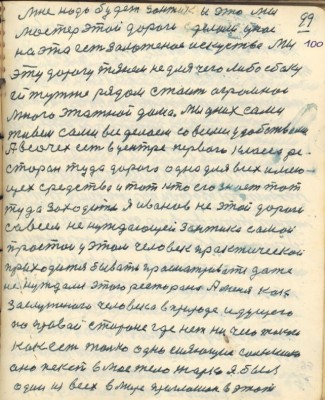 мне надо будет зонтик и это мы 99
мастер этой дороги 100
на эта есть заложеное искуство Мы
эту дорогу тянем не для чего либо збоку
ей тут же рядом стоит огромной
много этажной дома. Мы в них сами
живем сами все делаем со всеми удобствами
А в сочех есть в центре первого класса ре-
сторан туда дорога одна для всех имею-
щех средства и тот кто его знает тот
туда заходит. Я иванов не этой дороги
совсем не нуждающей зонтика самой
простой у этом человек практической
приходится бывать просматривать даже
не нуждам этого ресторана А меня как
заслуженого человека в природе идущего
по правай стороне где нет ни чего такого
как есть только одно сияющие солнышко
оно пекет в мое тело жарко я был
один из всех в мире приглашон в этот